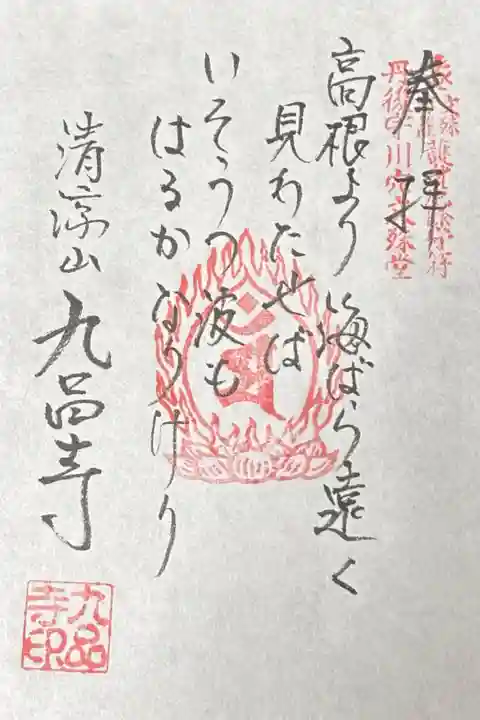 奉拝
丹後宇川穴文殊堂
高根より海ばら遠く
見わたせば
いそうつ波も
はるかなりけり
清涼山
九品寺
九品
寺印